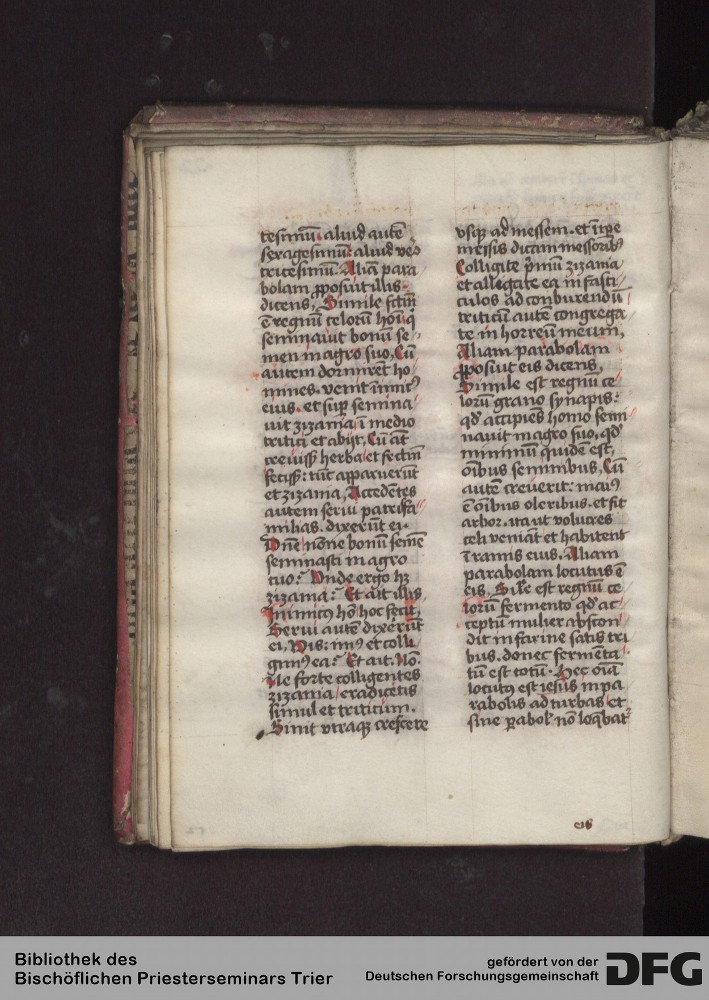 tesimū. aliud autē
sexagesimū: aliud vero
tricesimū. Aliā para
bolam ꝓposuit illis
dicens, Simile fctm̄
ē regnū celorū hoīi q̄
seminauit bonū se
men in agro suo, Cū
autem dormirēt ho
mines. venit inimicꝰ
eius. et suꝑ semina
uit zizania ī medio
tritici et abijt, Cū aūt
creuiss herba et fectm̄
fecisset: tūc apparuerūt
et zizania, Accedētes
autem serui patrisfa
milias. dixerūt ei.
Dn̄e nōne bonū semē
seminasti in agro
tuo? Vnde ergo hꝫ
zizania? Et ait illis
Inimicꝰ hō hoc fecit,
Serui autē dixerūt
ei, Vis: imꝰ et colli
gimꝰ ea? Et ait. Nō.
Ne forte colligentes
zizania eradicetis
simul et triticum.
Sinit vtraqꝫ crescere
vsqꝫ ad messem. et ī tp̄e
messis dicam messoribꝰ
Colligite p̄mū zizania
et alligate ea in fasci
culos ad conburendū
triticū autē congrega
te in horreū meum,
Aliam parabolam
ꝓposuit eis dicens,
Simile est regnū ce
lorū grano synapis:
qd̄ accipiēs homo semi
nauit in agro suo, qd̄
minimū quidē est,
oībus seminibus, Cū
autē creuerit: maiꝰ
ē oībus oleribus. et fit
arbor. ita ut volucres
celi veniāt et habitent
ī ramis eius. Aliam
parabolam locutus ē
eis, Sīle est regnū ce
lorū fermento qd̄ ac
ceptū mulier abscon
dit in farine satis tri
bus. donec fermēta
tū est totū. Hec oīa
locutꝰ est iesus in pa
rabolis ad turbas et
sine ꝑabol̄ nō loq̄bat᷑
eis
Bibliothek des
Bischöflichen Priesterseminars Trier
gefördert von der
Deutschen Forschungsgemeinschaft
DFG